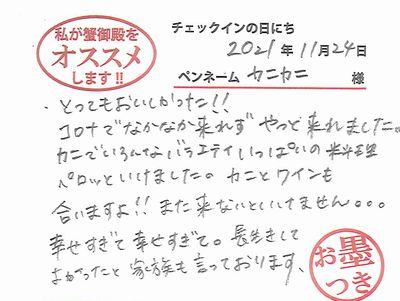 私が蟹御殿を
オススメ
します!!
チェックインの日にち
2021年11月24日
ペンネーム カニカニ 様
・とってもおいしかった!!
コロナでなかなか来れず やっと来れました。
カニでいろんなバラエティいっぱいの料理
ペロッといけましたの カニとワインも
合いますよ!! また来ないといけません。。。
幸せすぎて幸せすぎて。長生きして
よかったと 家族も言っております。
お墨つき